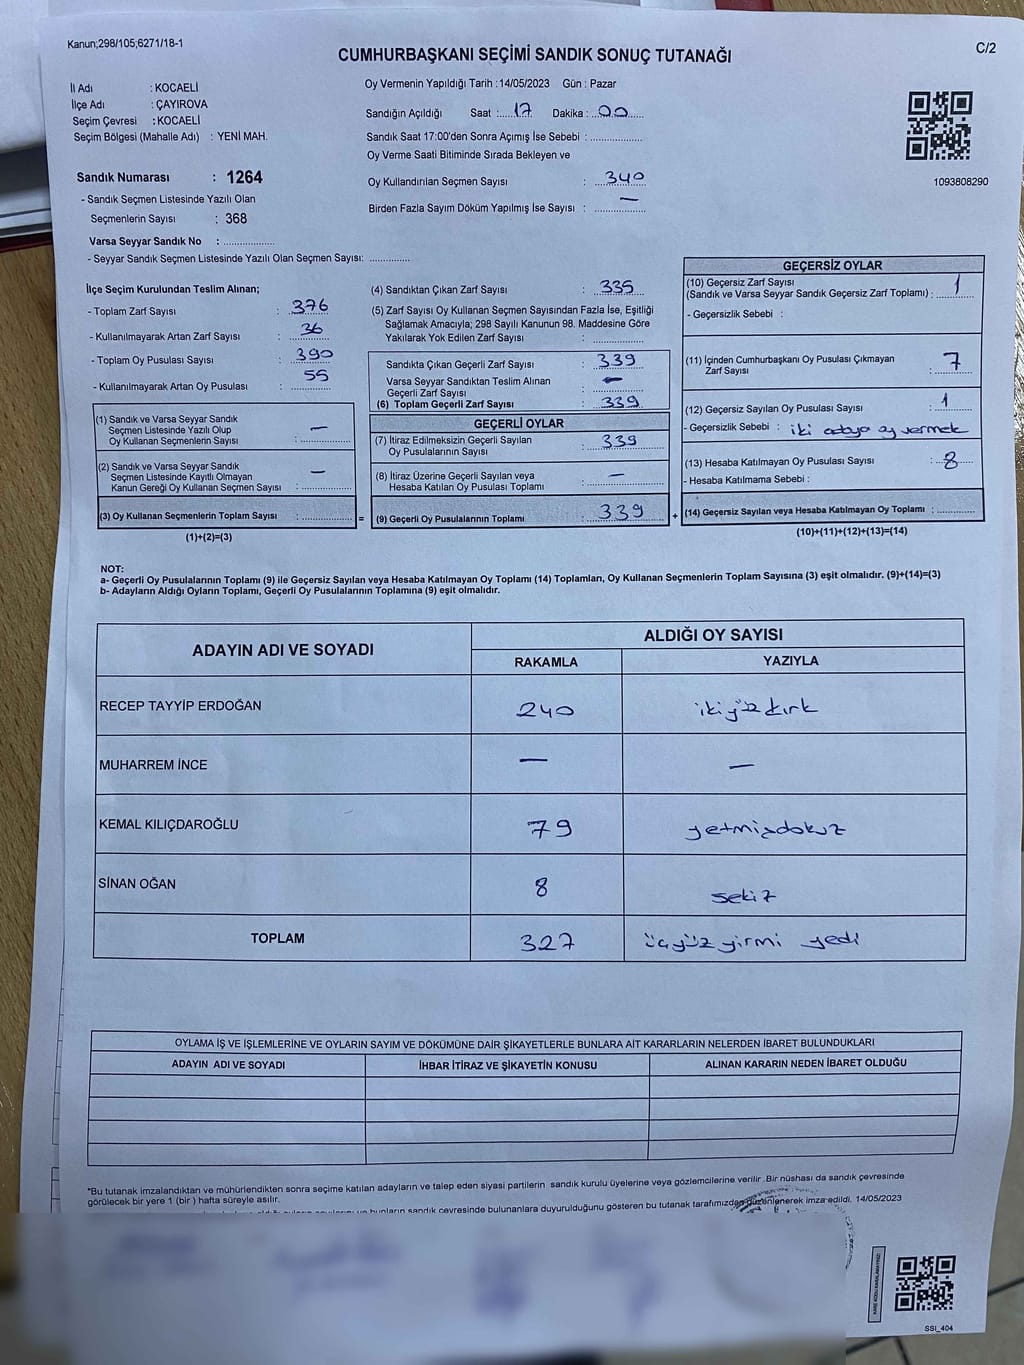 Kanun;298/105;6271/18-1
C/2
CUMHURBAŞKANI SEÇİMİ SANDIK SONUÇ TUTANAĞI
İl Adı : KOCAELİ
İlçe Adı : ÇAYIROVA
Seçim Çevresi : KOCAELİ
Seçim Bölgesi (Mahalle Adı) : YENİ MAH.
Sandık Numarası : 1264
- Sandık Seçmen Listesinde Yazılı Olan
Seçmenlerin Sayısı : 368
Varsa Seyyar Sandık No : ....................
- Seyyar Sandık Seçmen Listesinde Yazılı Olan Seçmen Sayısı: ...............
Oy Vermenin Yapıldığı Tarih :14/05/2023 Gün : Pazar
Sandığın Açıldığı Saat :.....17 Dakika :..00....
Sandık Saat 17:00'den Sonra Açımış İse Sebebi : ...................
Oy Verme Saati Bitiminde Sırada Bekleyen ve
Oy Kullandırılan Seçmen Sayısı : 340
Birden Fazla Sayım Döküm Yapılmış İse Sayısı : —
1093808290
İlçe Seçim Kurulundan Teslim Alınan;
- Toplam Zarf Sayısı : 376
- Kullanılmayarak Artan Zarf Sayısı : 36
- Toplam Oy Pusulası Sayısı : 390
- Kullanılmayarak Artan Oy Pusulası : 55
(1) Sandık ve Varsa Seyyar Sandık
Seçmen Listesinde Yazılı Olup
Oy Kullanan Seçmenlerin Sayısı : —
(2) Sandık ve Varsa Seyyar Sandık
Seçmen Listesinde Kayıtlı Olmayan
Kanun Gereği Oy Kullanan Seçmen Sayısı : —
(3) Oy Kullanan Seçmenlerin Toplam Sayısı :................ =
(1)+(2)=(3)
(4) Sandıktan Çıkan Zarf Sayısı : 335
(5) Zarf Sayısı Oy Kullanan Seçmen Sayısından Fazla İse, Eşitliği
Sağlamak Amacıyla; 298 Sayılı Kanunun 98. Maddesine Göre
Yakılarak Yok Edilen Zarf Sayısı : ................
Sandıkta Çıkan Geçerli Zarf Sayısı : 339
Varsa Seyyar Sandıktan Teslim Alınan
Geçerli Zarf Sayısı : —
(6) Toplam Geçerli Zarf Sayısı : 339
GEÇERLİ OYLAR
(7) İtiraz Edilmeksizin Geçerli Sayılan
Oy Pusulalarının Sayısı : 339
(8) İtiraz Üzerine Geçerli Sayılan veya
Hesaba Katılan Oy Pusulası Toplamı : —
(9) Geçerli Oy Pusulalarının Toplamı : 339 +
GEÇERSİZ OYLAR
(10) Geçersiz Zarf Sayısı
(Sandık ve Varsa Seyyar Sandık Geçersiz Zarf Toplamı) : 1
- Geçersizlik Sebebi :
(11) İçinden Cumhurbaşkanı Oy Pusulası Çıkmayan
Zarf Sayısı : 7
(12) Geçersiz Sayılan Oy Pusulası Sayısı : 1
- Geçersizlik Sebebi : iki adaya oy vermek
(13) Hesaba Katılmayan Oy Pusulası Sayısı : 8
- Hesaba Katılmama Sebebi :
(14) Geçersiz Sayılan veya Hesaba Katılmayan Oy Toplamı : ............
(10)+(11)+(12)+(13)=(14)
NOT:
a- Geçerli Oy Pusulalarının Toplamı (9) ile Geçersiz Sayılan veya Hesaba Katılmayan Oy Toplamı (14) Toplamları, Oy Kullanan Seçmenlerin Toplam Sayısına (3) eşit olmalıdır. (9)+(14)=(3)
b- Adayların Aldığı Oyların Toplamı, Geçerli Oy Pusulalarının Toplamına (9) eşit olmalıdır.
ADAYIN ADI VE SOYADI ALDIĞI OY SAYISI
RAKAMLA YAZIYLA
RECEP TAYYİP ERDOĞAN 240 ikiyüzkırk
MUHARREM İNCE — —
KEMAL KILIÇDAROĞLU 79 yetmişdokuz
SİNAN OĞAN 8 sekiz
TOPLAM 327 üçyüzyirmi yedi
OYLAMA İŞ VE İŞLEMLERİNE VE OYLARIN SAYIM VE DÖKÜMÜNE DAİR ŞİKAYETLERLE BUNLARA AİT KARARLARIN NELERDEN İBARET BULUNDUKLARI
ADAYIN ADI VE SOYADI İHBAR İTİRAZ VE ŞİKAYETİN KONUSU ALINAN KARARIN NEDEN İBARET OLDUĞU
*Bu tutanak imzalandıktan ve mühürlendikten sonra seçime katılan adayların ve talep eden siyasi partilerin sandık kurulu üyelerine veya gözlemcilerine verilir .Bir nüshası da sandık çevresinde
görülecek bir yere 1 (bir ) hafta süreyle asılır.
bunların sandık çevresinde bulunanlara duyurulduğunu gösteren bu tutanak tarafımızdan düzenlenerek imza edildi. 14/05/2023
SSI_404